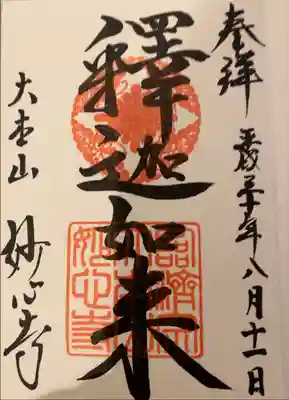 奉拝 平成三十年八月十一日
釋迦如来
大本山 妙心寺